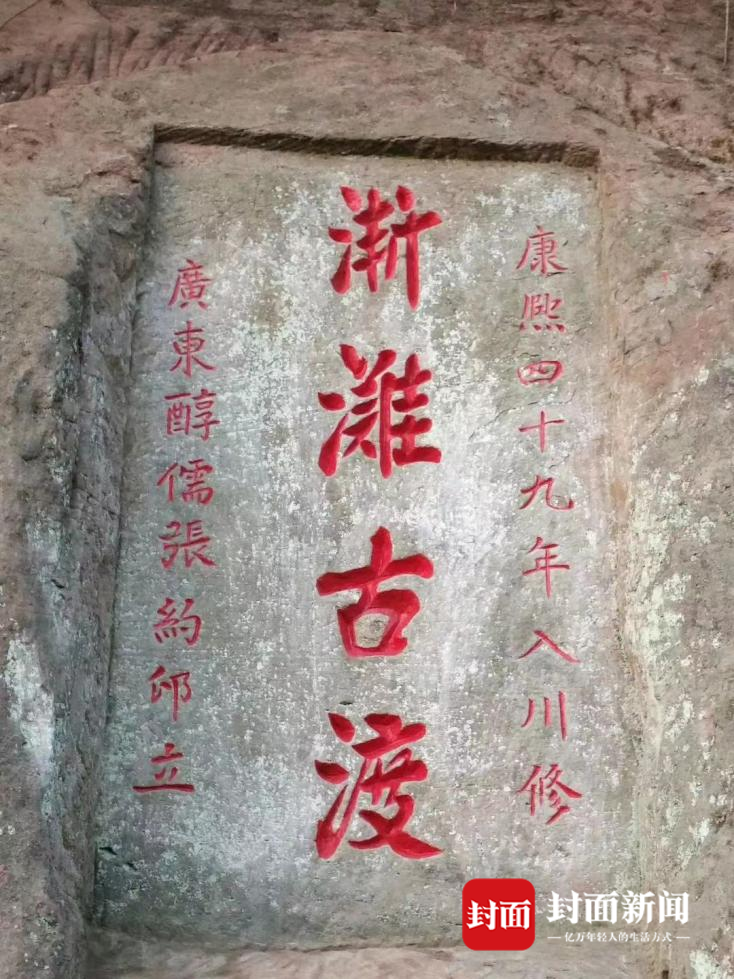 康熙四十九年入川修
渐灘古渡
廣東醇儒張約邱立
封面
封面新闻
亿万年轻人的生活方式